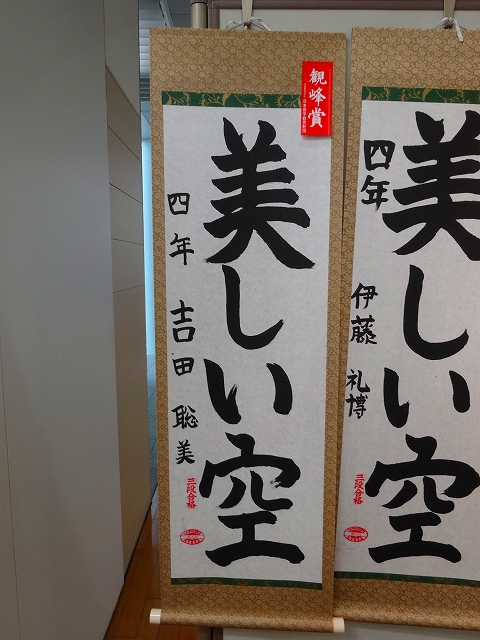 観峰賞
美しい空
四年 吉田聡美
三段合格
美しい空
四年 伊藤礼博
三段合格